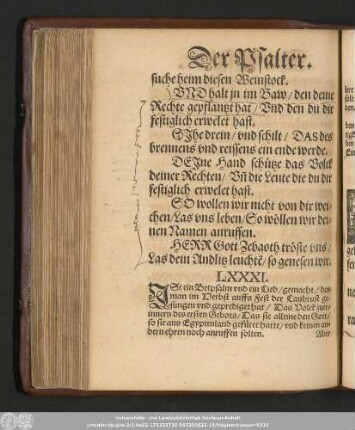 Der Psalter.
suche heim diesen Weinstock.
VND halt jn im Baw / den deine
Rechte gepflantzt hat / Vnd den du dir
festiglich erwelet hast.
SJhe drein / vnd schilt / DAS des
brennens vnd reissens ein ende werde.
DEJne Hand schütze das Volck
deiner Rechten / Vñ die Leute die du dir
festiglich erwelet hast.
SO wollen wir nicht von dir wei-
chen / Las vns leben / So wöllen wir dei-
nen Namen anruffen.
HERR Gott Zebaoth tröste vns /
Las dein Andlitz leuchtē / so genesen wir.
LXXXI.
JSt ein Betpsalm vnd ein Lied / gemacht / das
man im Herbst auffs Fest der Laubrust ge-
sungen vnd geprediget hat / Das Volck zuer-
innern des ersten Gebots / Das sie alleine den Gott /
so sie aus Egyptenland gefüret hatte / vnd keinen an-
dern ehren noch anruffen solten.
Aber